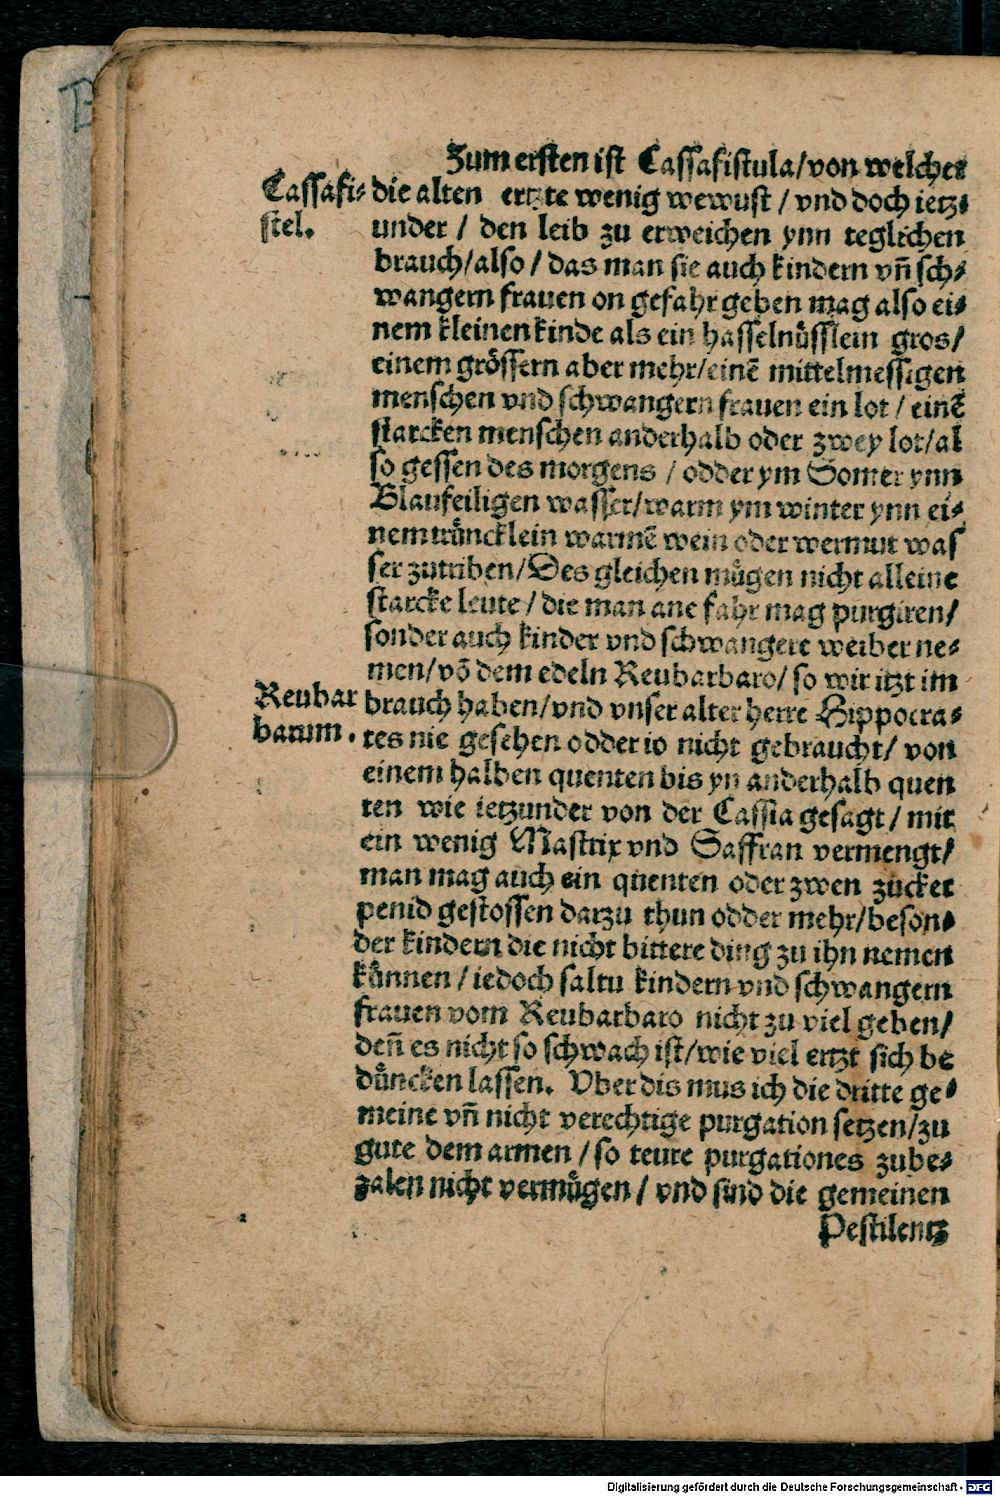 Zum ersten ist Cassafistula/von welcher
Cassafi⸗
stel.
die alten ertzte wenig wewust / vnd doch ietz⸗
under / den leib zu erweichen ynn teglichen
brauch/also / das man sie auch kindern vñ sch⸗
wangern frauen on gefahr geben mag also ei⸗
nem kleinen kinde als ein hasselnůsslein gros/
einem grössern aber mehr/einē mittelmessigen
menschen vnd schwangern frauen ein lot / einē
starcken menschen anderhalb oder zwey lot/al
so gessen des morgens / odder ym Somer ynn
Blaufeiligen wasser/warm ym winter ynn ei⸗
nem trůncklein warmē wein oder wermut was
ser zutriben/Des gleichen můgen nicht alleine
starcke leute / die man ane fahr mag purgiren/
sonder auch kinder vnd schwangere weiber ne⸗
men/vō dem edeln Reubarbaro/ so wir itzt im
Reubar
barum.
brauch haben/vnd vnser alter herre Hippocra⸗
tes nie gesehen odder io nicht gebraucht/ von
einem halben quenten bis yn anderhalb quen
ten wie ietzunder von der Cassia gesagt / mit
ein wenig Mastrix vnd Saffran vermengt/
man mag auch ein quenten oder zwen zucker
penid gestossen darzu thun odder mehr/beson⸗
der kindern die nicht bittere ding zu ihn nemen
kůnnen / iedoch saltu kindern vnd schwangern
frauen vom Reubarbaro nicht zu viel geben/
deñ es nicht so schwach ist/wie viel ertzt sich be
důncken lassen. Vber dis mus ich die dritte ge⸗
meine vñ nicht verechtige purgation setzen/zu
gute dem armen / so teure purgationes zube⸗
zalen nicht vermůgen / vnd sind die gemeinen
Pestilentz
Digitalisierung gefördert durch die Deutsche Forschungsgemeinschaft - DFG